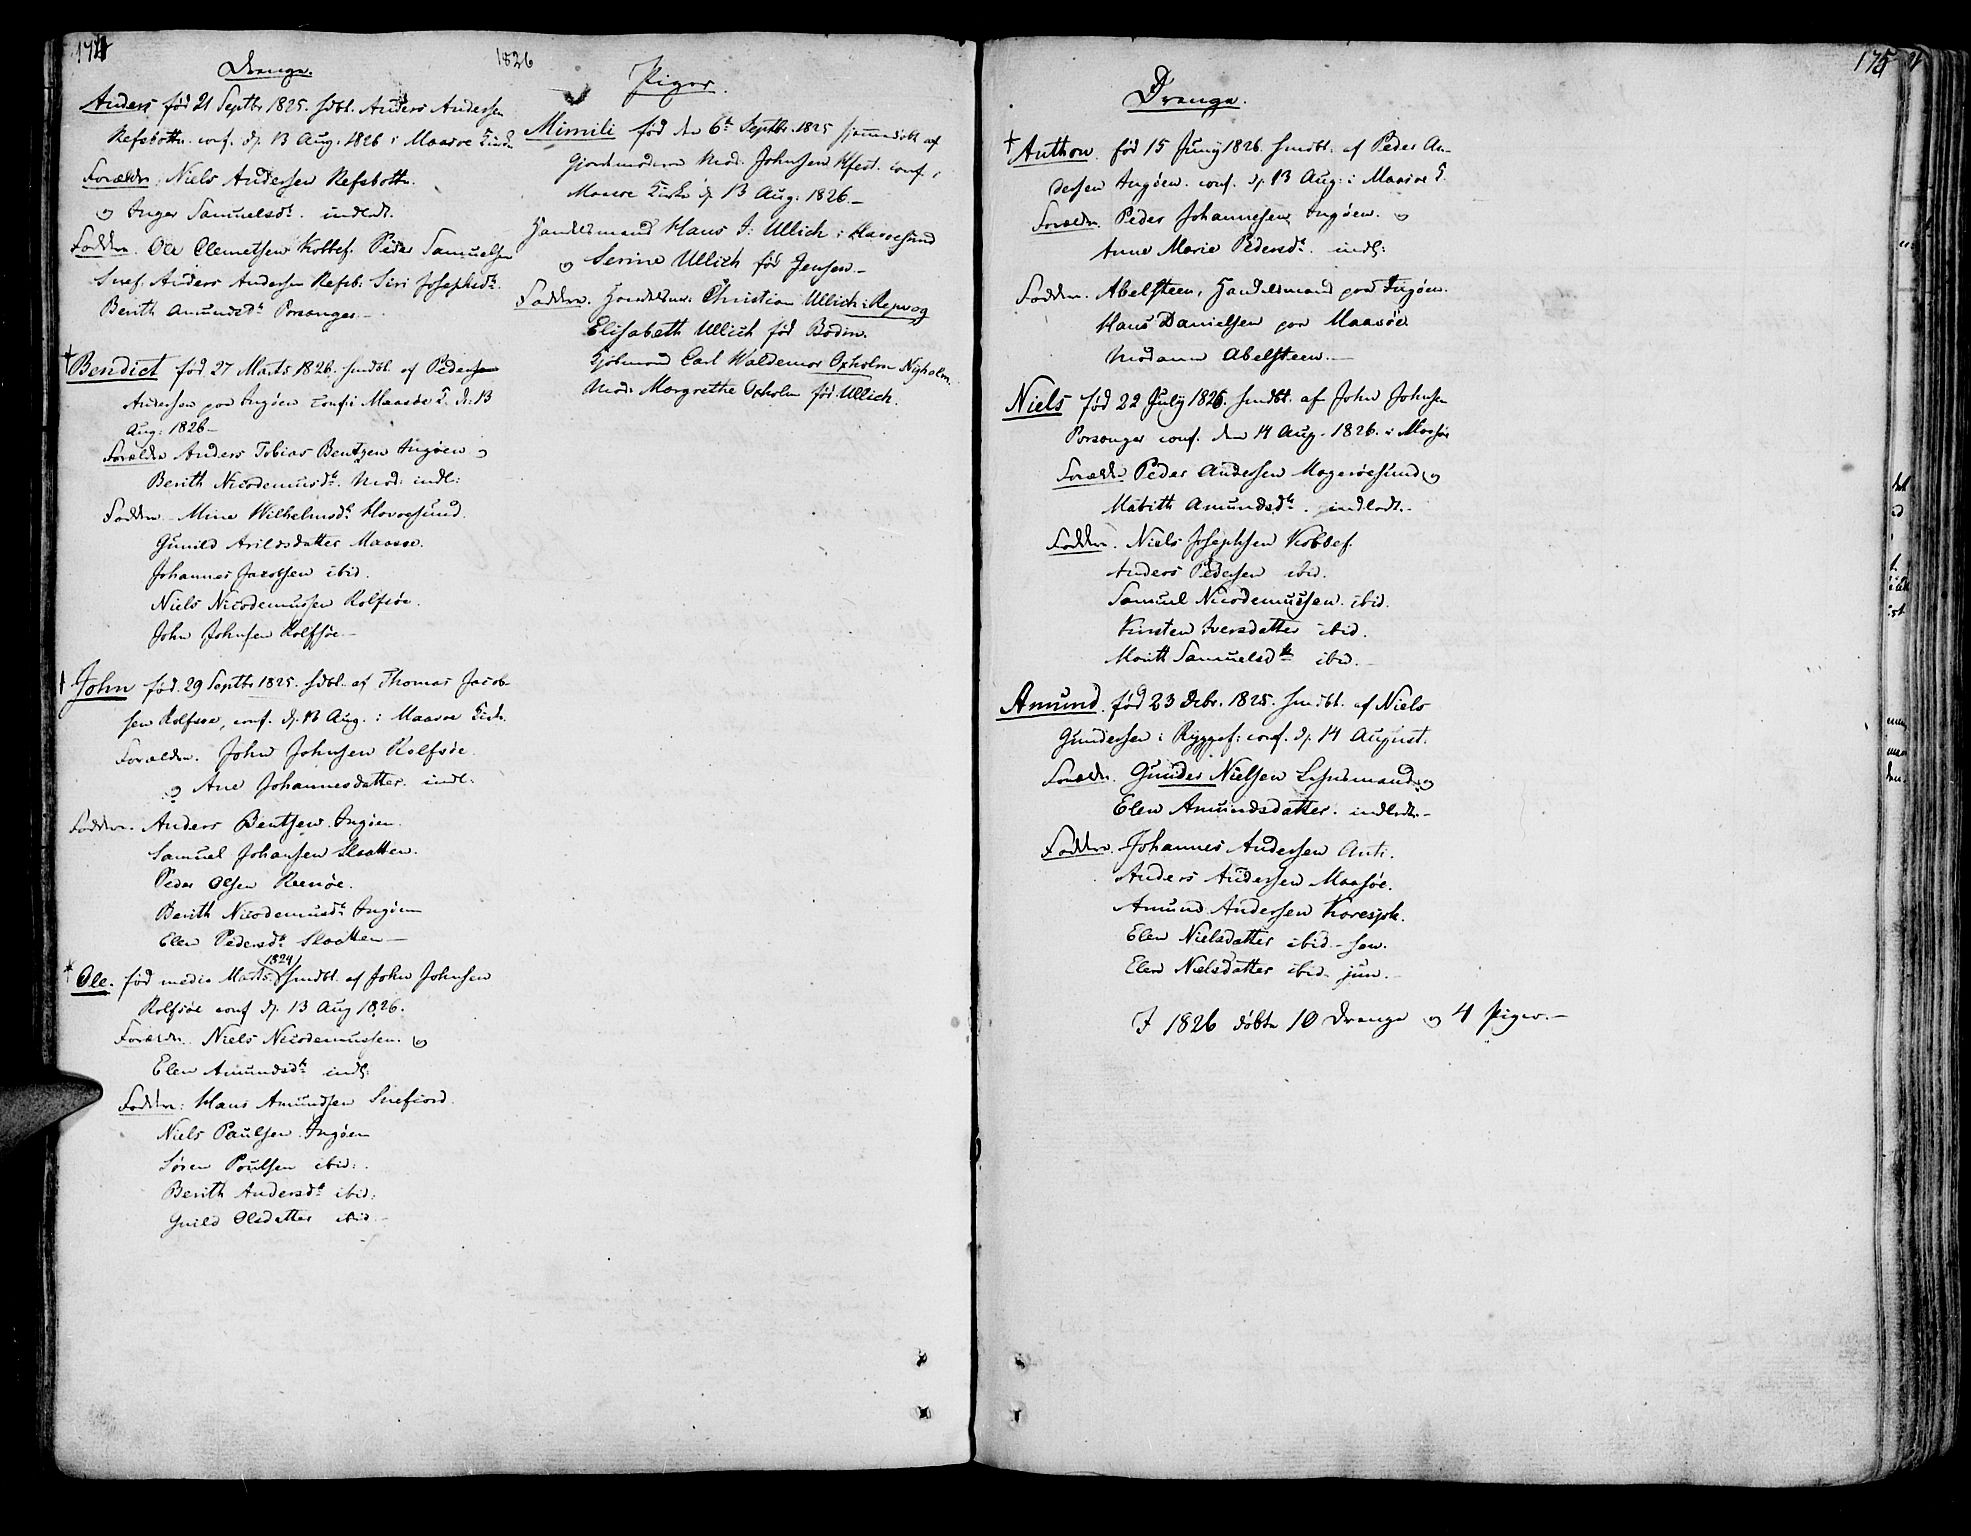 174
1826
Drenge.
Anders, fød 21 Septbr 1825. hdbt. Anders Andersen
Refsbottn. conf. d. 13 Aug. 1826 i Maasøe Kirke
Forældre, Niels Andersen Refsbottn.
og Inger Samuelsdtr. indldt.
Faddere. Ole Clemetsen Kobbef. Peder Samuelsen
Snef. Anders Andersen Refsb. Siri Josephsdtr.
Berith Amundsdtr Porsanger.-
† Bendict fød 27 Marts 1826. hmdbt. af Peder
Andersen paa Ingøen conf. i Maasøe K. d. 13
Aug. 1826-
Forældre Anders Tobias Bentzen Ingøen og
Berith Nicodemusdtr. Mad. indl:
Faddere Mina Wilhelmsdtr Havøesund.
Gunild Arildsdatter Maasøe.
Johannes Jacobsen ibid.
Niels Nicodemussen Rolfsøe.
John Johnsen Rolfsøe-
† John fød 29 Septbr 1825. hdbt. af Thomas Jacob-
sen Rolfsøe, conf. d. 13 Aug. i Maasøe Kirke.
Forældre. John Johnsen Rolfsøe.
og Ane Johannesdatter. indl:
Faddere. Anders Bentsen Ingøen.
Samuel Johansen Slaatten.
Peder Olsen Reenøe.
Berith Nicodemusdtr Ingøen
Elen Pedersdtr Slaatten-
* Ole. fød medio Marts 1824 hmdbt. af John Johnsen
Rolfsøe conf d. 13 Aug 1826.
Forældre Niels Nicodemussen. og
Elen Amundsdtr indl:
Faddere: Hans Amundsen Snefiord.
Niels Paulsen Ingøen
Søren Poulsen ibid:
Berith Andersdtr ibid:
Guild Olsdatter ibid-
Piger.
Mimili fød den 6te Septbr. 1825 hjemmedøbt af
Gjordmoderen Mad. Johnsen Hfest. conf. i
Maasøe Kirke d. 13 Aug: 1826-
Handelsmand Hans J: Ullich i Havøesund
og Serine Ullich fød Jensen-
Faddere. Handelsm. Christian Ullich i Repvog
Elisabeth Ullich fød Bodin.
Kjøbmand Carl Waldemar Oxholm Nyholm.
Mad. Margrethe Oxholm fød Ullich.
175
Drenge.
† Anthon. fød 15 Juny 1826. hmdbt. af Peder An-
dersen Ingøen. conf. d. 13 Aug: i Maasøe K.
Forældre Peder Johannesen Ingøen. og
Anne Marie Pedersdtr. indl:
Faddere. Abelsteen, Handelsmand paa Ingøen.
Hans Danielsen paa Maasøe
Madame Abelsteen.-
Niels fød 22 July 1826. hmdbt. af John Johnsen
Porsanger conf. den 14 Aug. 1826. i Maasøe
Forældre Peder Andersen Magerøesund og
Mabith Amundsdtr. indlodt.-
Faddere. Niels Josephsen Kobbef.
Anders Pedersen ibid.
Samuel Nicodemussen ibid.
Kirsten Iversdatter ibid.
Marit Samuelsdtr ibid.-
Amund. fød 23 Debr. 1825. hmdbt. af Niels
Gundersen i Ryggef: conf. d. 14 August.
Forældre. Gunder Nielsen Lehnsmand og
Elen Amundsdatter. indlodt.-
Faddere. Johannes Andersen Anti.
Anders Andersen Maasøe.
Amund Andersen Karesjok.
Elen Nielsdatter ibid- sen.
Elen Nielsdatter ibid- jun.-
I 1826 døbte 10 Drenge og 4 Piger.-